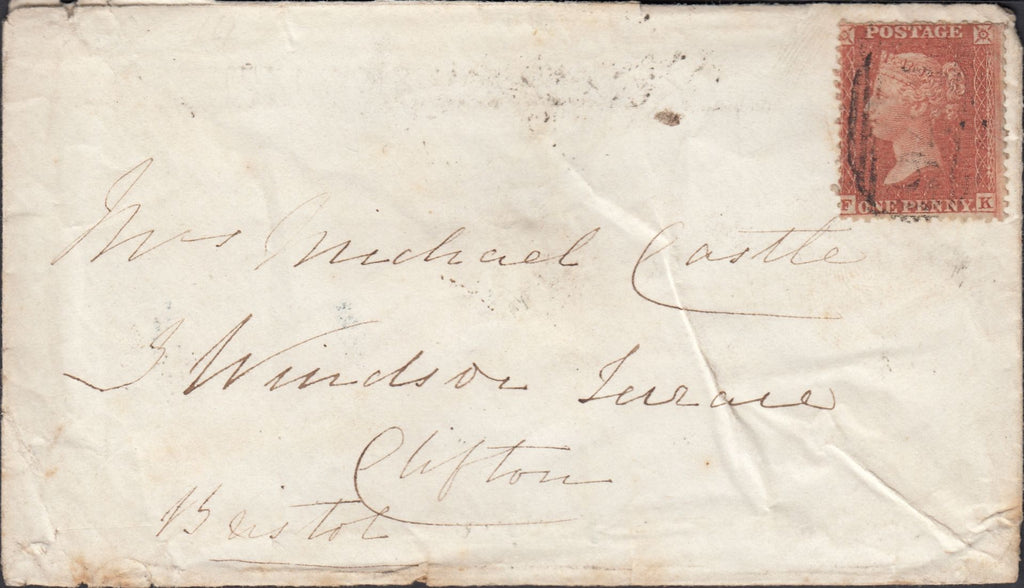 POSTAGE
F ONE PENNY K
Mrs Michael Castle
3 Windsor Terrace
Clifton
Bristol